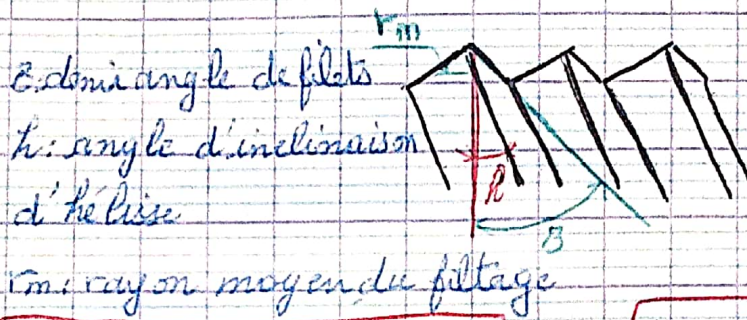 rm
β: demi angle de filets
h: angle d'inclinaison
d'hélisse
h
β
rm: rayon moyen du filtage